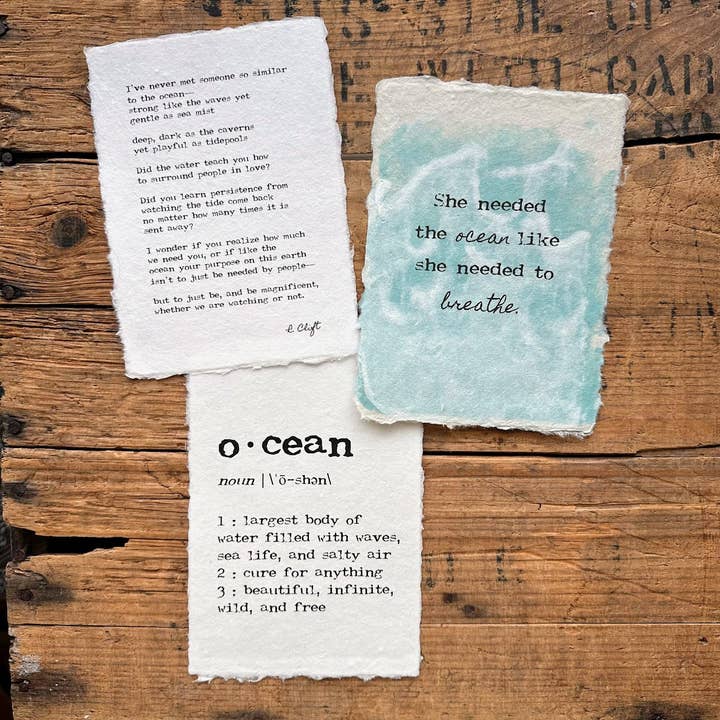 I've never met someone so similar
to the ocean—
strong like the waves yet
gentle as sea mist
deep, dark as the caverns
yet playful as tidepools
Did the water teach you how
to surround people in love?
Did you learn persistence from
watching the tide come back
no matter how many times it is
sent away?
I wonder if you realize how much
we need you, or if like the
ocean your purpose on this earth
isn't to just be needed by people—
but to just be, and be magnificent,
whether we are watching or not.
She needed
the ocean like
she needed to
breathe.
o·cean
noun |\'ō-shən\
1 : largest body of
water filled with waves,
sea life, and salty air
2 : cure for anything
3 : beautiful, infinite,
wild, and free